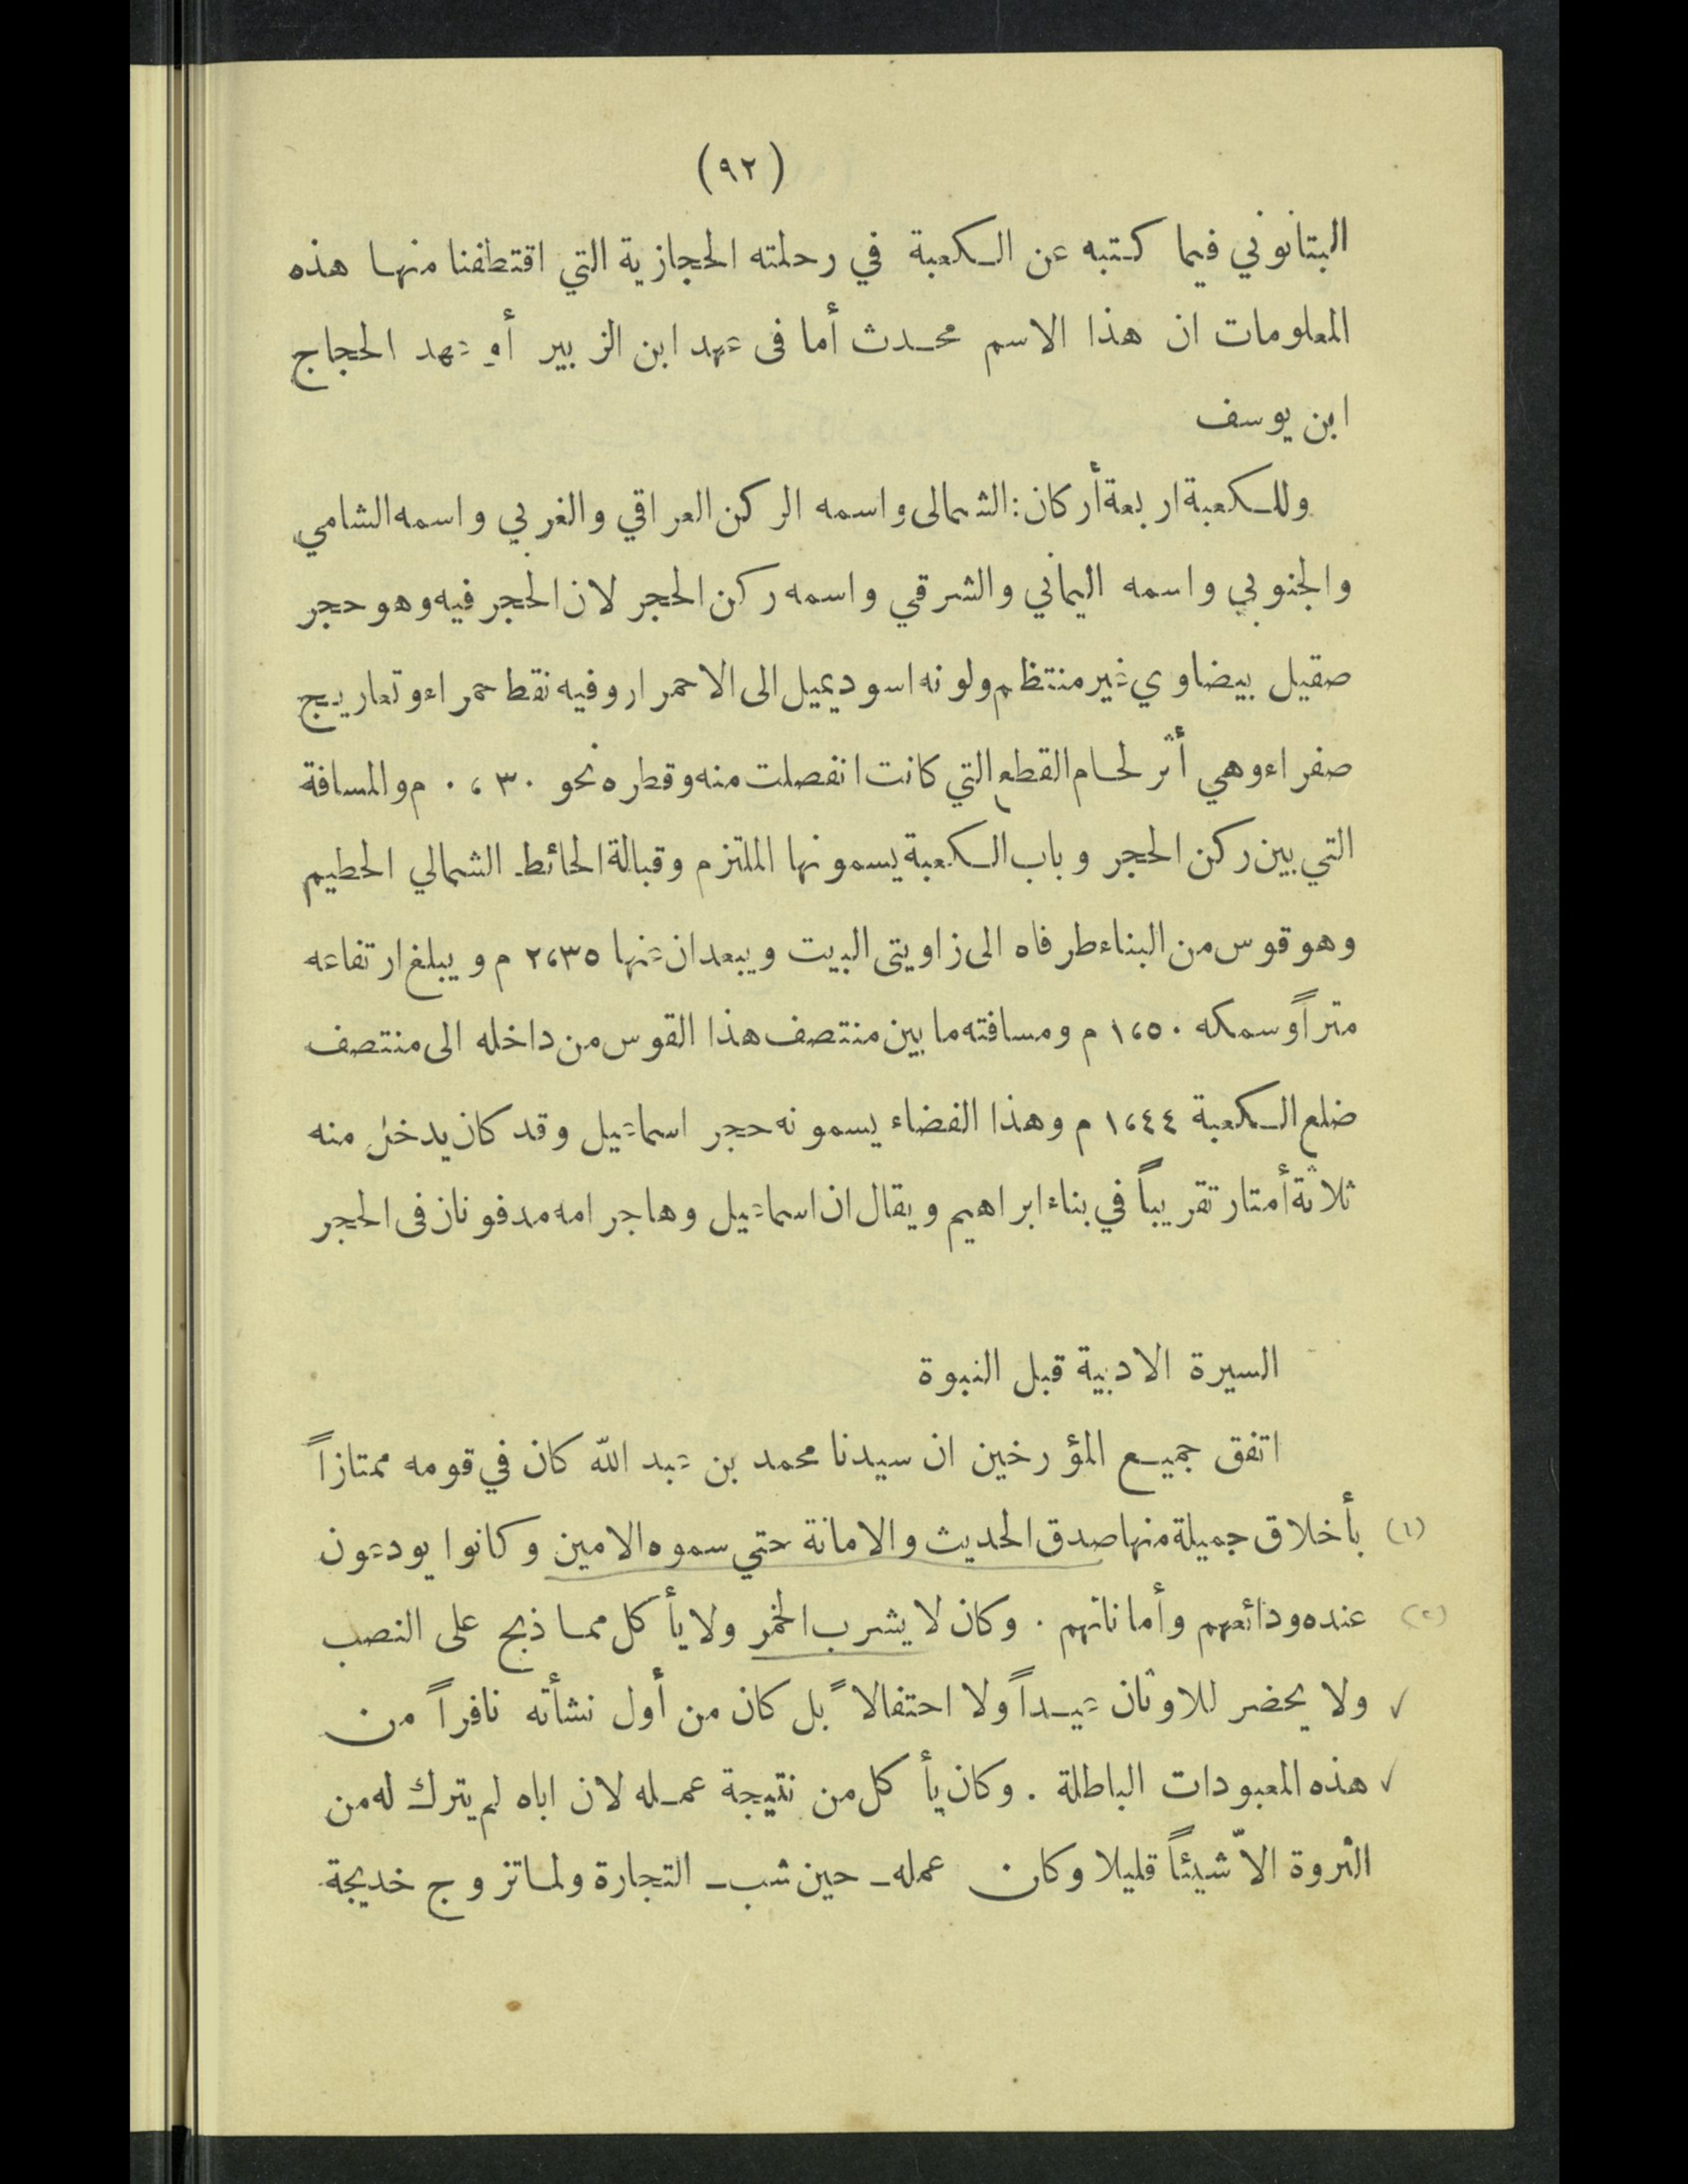 (٩٢)
البتانوني فيما كتبه عن الكعبة في رحلته الحجازية التي اقتطفنا منها هذه
المعلومات ان هذا الاسم محدث أما فى عهد ابن الزبير أو عهد الحجاج
ابن يوسف
وللكعبة اربعة أركان : الشمالى واسمه الركن العراقي والغربي واسمه الشامي
والجنوبي واسمه اليماني والشرقي واسمه ركن الحجر لان الحجر فيه وهو حجر
صقيل بيضاوي غير منتظم ولونه اسود يميل الى الاحمرار وفيه نقط حمراء وتعاريج
صفراء وهي أثر لحام القطع التي كانت انفصلت منه وقطره نحو ٠،٣٠ م والمسافة
التي بين ركن الحجر وباب الكعبة يسمونها الملتزم وقبالة الحائط الشمالي الحطيم
وهو قوس من البناء طرفاه الى زاويتى البيت ويبعدان عنها ٢،٣٥ م ويبلغ ارتفاعه
متراً وسمكه ١،٥٠ م ومسافته ما بين منتصف هذا القوس من داخله الى منتصف
ضلع الكعبة ١،٤٤ م وهذا الفضاء يسمونه حجر اسماعيل وقد كان يدخل منه
ثلاثة أمتار تقريباً في بناء ابراهيم ويقال ان اسماعيل وهاجر امه مدفونان فى الحجر
السيرة الادبية قبل النبوة
اتفق جميع المؤرخين ان سيدنا محمد بن عبد الله كان في قومه ممتازاً
(١) بأخلاق جميلة منها صدق الحديث والامانة حتي سموه الامين وكانوا يودعون
(٢) عنده ودائعهم وأماناتهم . وكان لا يشرب الخمر ولا يأكل مما ذبح على النصب
✓ ولا يحضر للاوثان عيداً ولا احتفالاً بل كان من أول نشأته نافراً من
✓ هذه المعبودات الباطلة . وكان يأكل من نتيجة عمله لان اباه لم يترك له من
الثروة الاّ شيئاً قليلا وكان عمله ـ حين شب ـ التجارة ولما تزوج خديجة